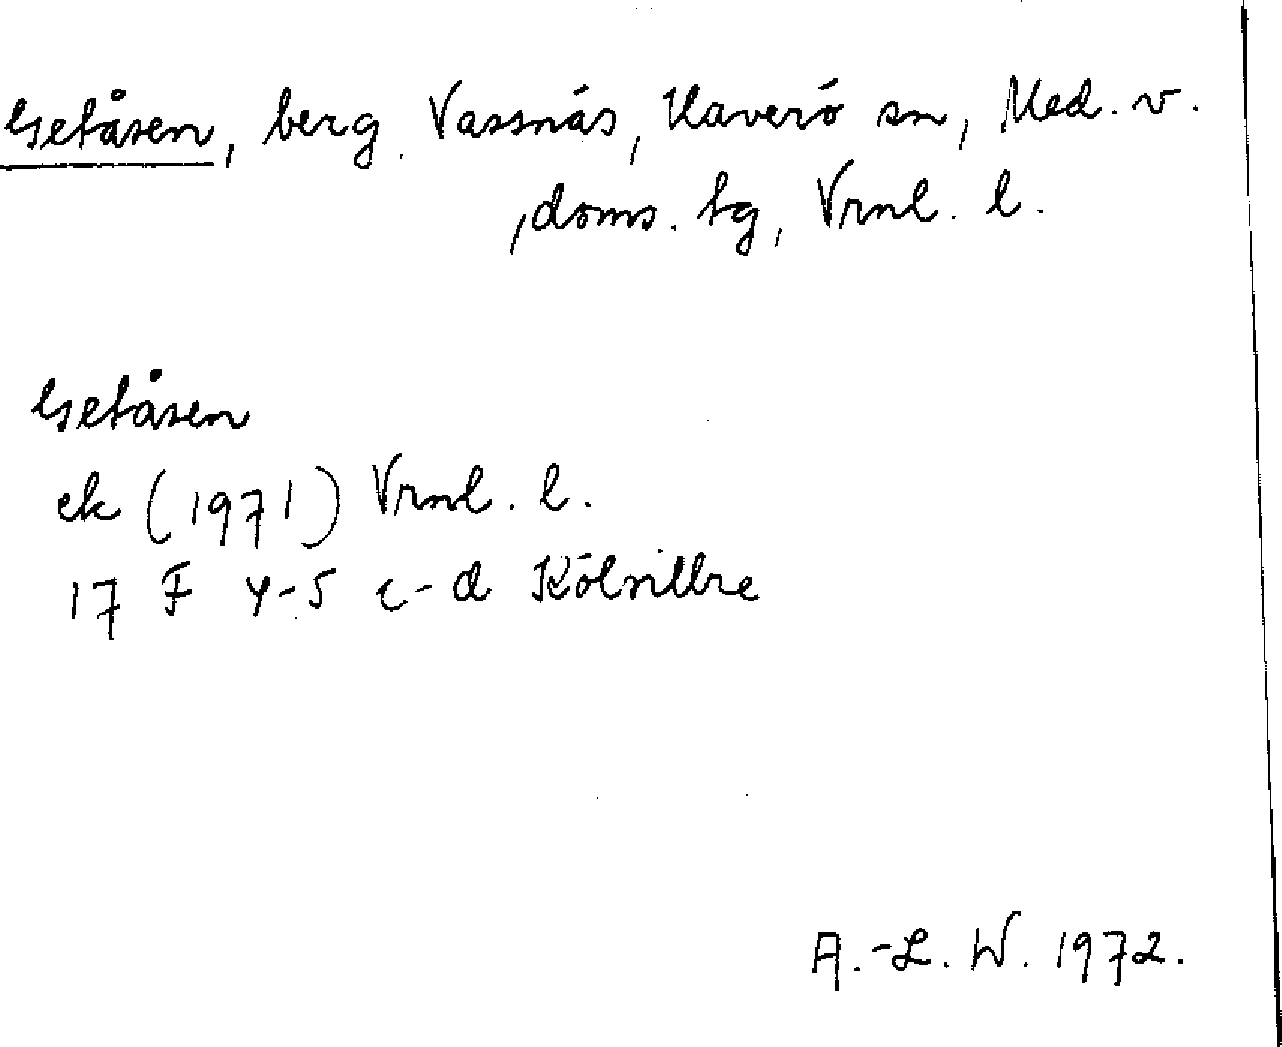 Getåsen, berg. Vassnäs, Haverö sn, Med. v.
, doms. tg, Vrnl. l.
Getåsen
ek (1971) Vrnl. l.
17 F 4-5 c-d Kölsillre
A.-L. W. 1972.